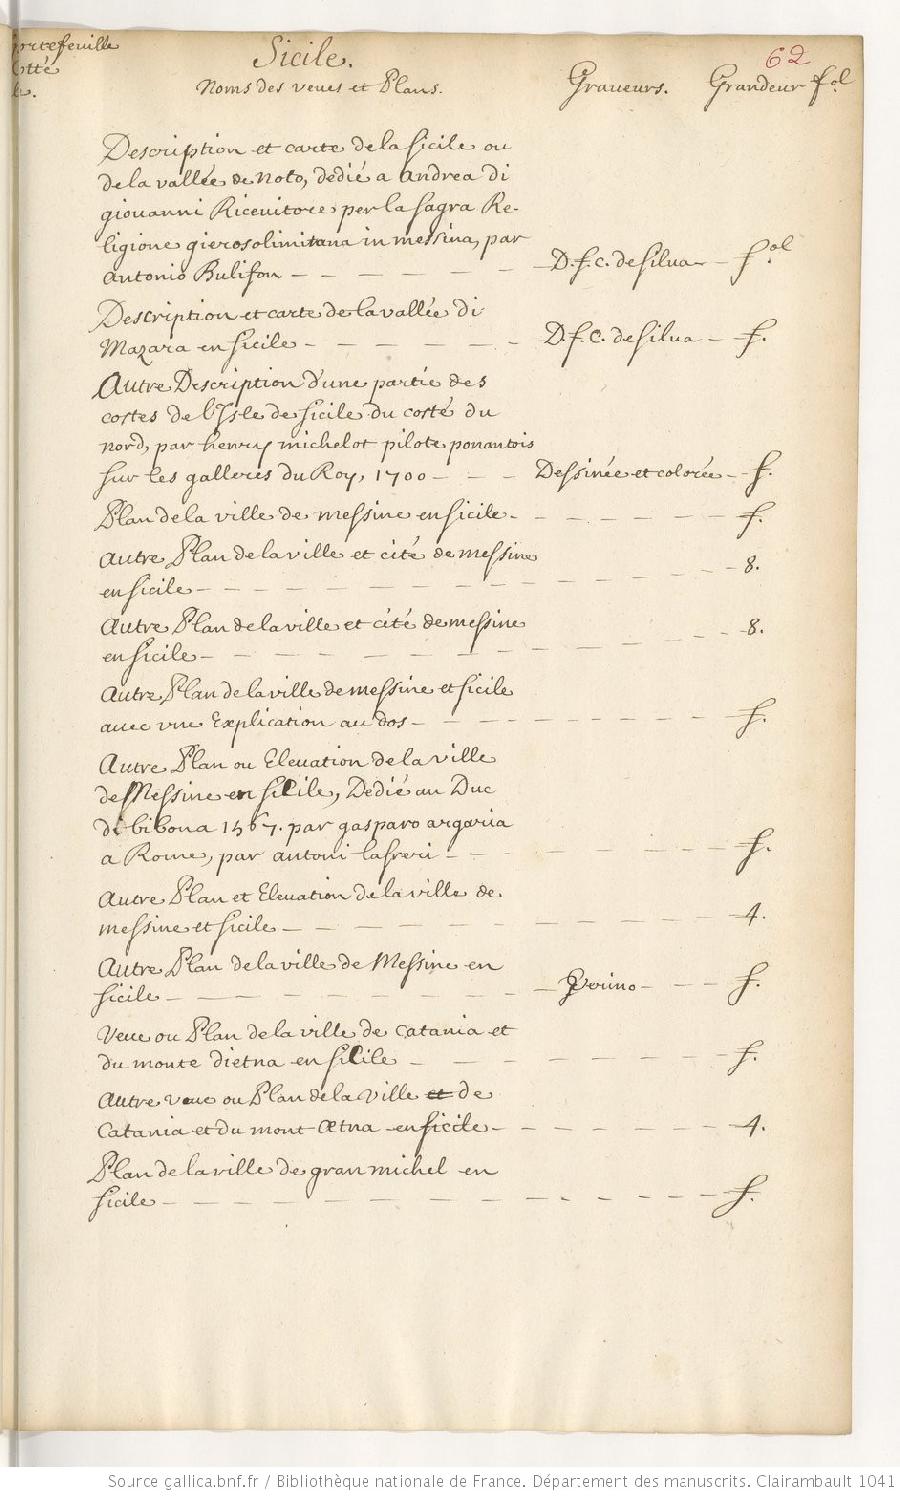 ortefeuille
otté
Sicile.
62
Noms des veues et Plans.
Graueurs.
Grandeur fol
Description et carte de la sicile ou
de la vallée de noto, dedié a andrea di
giouanni Riceuitore per la sagra Re-
ligione gierosolimitana in messina, par
antonio Bulifon — D. f. c. de silua — fol
Description et carte de la vallée di
Mazara en sicile — D. f. C. de silua — f.
Autre Description d'une partie des
costes de l'Isle de sicile du costé du
nord, par henry michelot pilote ponantois
sur les galleres du Roy, 1700 — Dessinée et colorée — f.
Plan de la ville de messine en sicile — f.
autre Plan de la ville et cité de messine
en sicile — 8.
Autre Plan de la ville et cité de messine
en sicile — 8.
Autre Plan de la ville de messine et sicile
auec vne Explication au dos — f.
Autre Plan ou Eleuation de la ville
de Messine en sicile, Dedié au Duc
di bibona 1567. par gasparo argaria
a Rome, par antoni lafreri — f.
Autre Plan et Eleuation de la ville de
messine et sicile — 4.
Autre Plan de la ville de Messine en
sicile — Perino — f.
Veue ou Plan de la ville de catania et
du monte dietna en sicile — f.
Autre veue ou Plan de la ville et de
Catania et du mont Ætna en sicile — 4.
Plan de la ville de gran michel en
sicile — f.
Source gallica.bnf.fr / Bibliothèque nationale de France. Département des manuscrits. Clairambault 1041